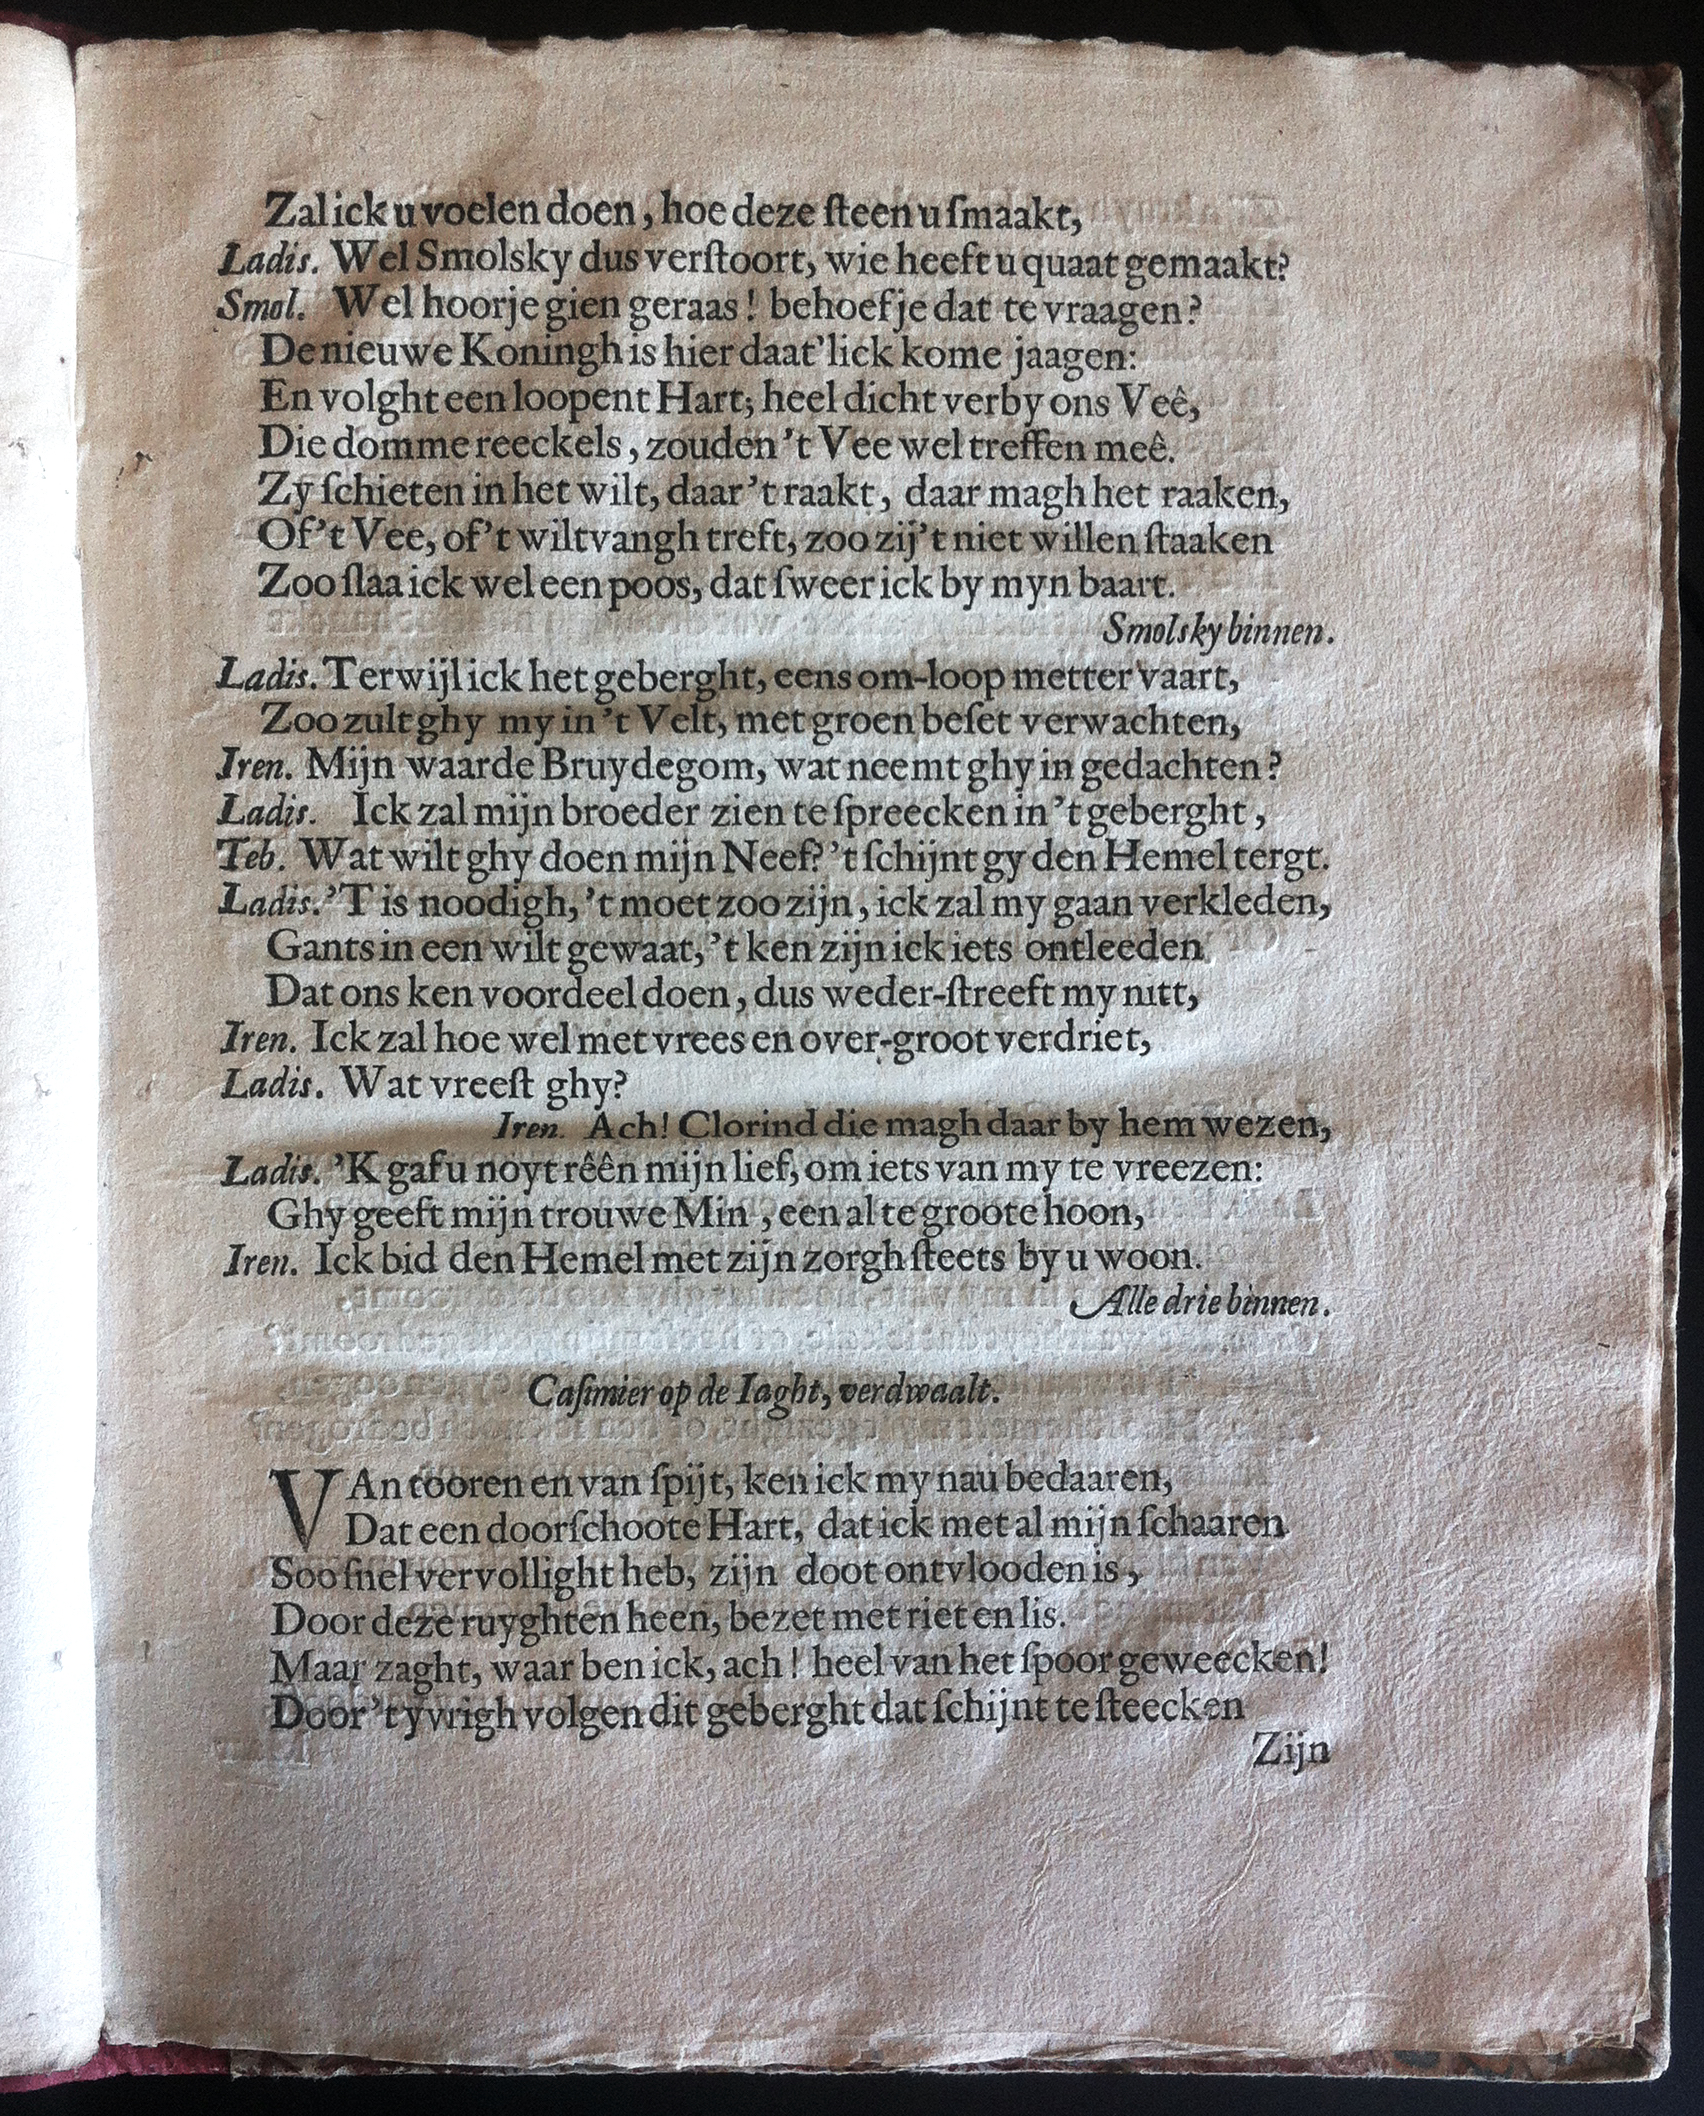 Zal ick u voelen doen, hoe deze ſteen u ſmaakt,
Ladis. Wel Smolsky dus verſtoort, wie heeft u quaat gemaakt?
Smol. Wel hoorje gien geraas! behoef je dat te vraagen?
De nieuwe Koningh is hier daat'lick kome jaagen:
En volght een loopent Hart; heel dicht verby ons Veê,
Die domme reeckels, zouden 't Vee wel treffen meê.
Zy ſchieten in het wilt, daar 't raakt, daar magh het raaken,
Of 't Vee, of 't wiltvangh treft, zoo zij 't niet willen ſtaaken
Zoo ſlaa ick wel een poos, dat ſweer ick by myn baart.
Smolsky binnen.
Ladis. Terwijl ick het geberght, eens om-loop metter vaart,
Zoo zult ghy my in 't Velt, met groen beſet verwachten,
Iren. Mijn waarde Bruydegom, wat neemt ghy in gedachten?
Ladis. Ick zal mijn broeder zien te ſpreecken in 't geberght,
Teb. Wat wilt ghy doen mijn Neef? 't ſchijnt gy den Hemel tergt.
Ladis. 'T is noodigh, 't moet zoo zijn, ick zal my gaan verkleden,
Gants in een wilt gewaat, 't ken zijn ick iets ontleeden
Dat ons ken voordeel doen, dus weder-ſtreeft my nitt,
Iren. Ick zal hoe wel met vrees en over-groot verdriet,
Ladis. Wat vreeſt ghy?
Iren. Ach! Clorind die magh daar by hem wezen,
Ladis. 'K gaf u noyt rêên mijn lief, om iets van my te vreezen:
Ghy geeft mijn trouwe Min, een al te groote hoon,
Iren. Ick bid den Hemel met zijn zorgh ſteets by u woon.
Alle drie binnen.
Caſimier op de Iaght, verdwaalt.
VAn tooren en van ſpijt, ken ick my nau bedaaren,
Dat een doorſchoote Hart, dat ick met al mijn ſchaaren
Soo ſnel vervollight heb, zijn doot ontvlooden is,
Door deze ruyghten heen, bezet met riet en lis.
Maar zaght, waar ben ick, ach! heel van het ſpoor geweecken!
Door 't yvrigh volgen dit geberght dat ſchijnt te ſteecken
Zijn